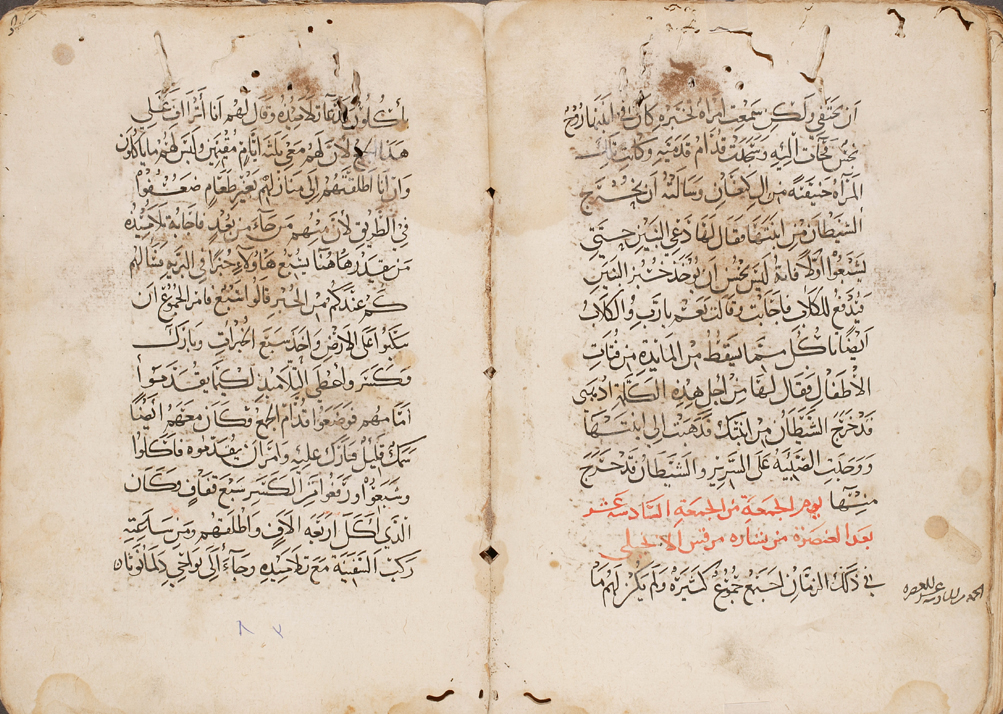 ان يختفي ولكن سمعت امراه لخبره كان في ابنتها روح
نجس فجات اليه وسجدت قدام قدميه وكانت تلك
المرآه حنيفة من الكنعان وسالته ان يخرج
الشيطان من ابنتها فقال لها دعي البنين حتي
يشبعوا اولًا فانه ليس يحسن ان يوخذ خبز البنين
فيدفع للكلاب فاجابت وقالت نعم يارب والكلاب
ايضًا تاكل مما يسقط من المايده من فتات
الاطفال فقال لها من اجل هذه الكلمة اذهبى
قد خرج الشيطان من ابنتك فذهبت الى بيتها
ووجدت الصبيه على السرير والشيطان قد خرج
منها يوم الجمعة من الجمعة السادسة عشر
بعد العنصرة من بشاره مرقس الانجيلي
في ذلك الزمان اجتمع جموع كثيرة ولم يكن لهم ما
الجمعه من السادسه عشر للعنصره
يأكلون فدعا تلاميذه وقال لهم انا أتراف على
هذا الجمع لان لهم معي ثلثه ايام مقيمين وليس لهم ما ياكلون
وان انا اطلقتهم الى منازلهم بغير طعام ضعفوا
في الطريق لأن منهم من جاء من بعد فاجابه تلاميذه
من يقدر هاهنا يشبع هاولاء خبزًا في البريه فسألهم
كم عندكم من الخبز قالوا سبع فامر الجموع ان
يتكوا على الارض واخذ سبع الخبزات وبارك
وكسر واعطى التلاميذ لكيما يقدموا
امامهم فوضعوا قدام الجمع وكان معهم ايضًا
سمك قليل فبارك عليه وامر ان يقدموه فاكلوا
وشبعوا ورفعوا من الكسر سبع قفاف وكان
الذي اكل اربعه الاف واطلقهم ومن ساعته
ركب السفينة مع تلاميذه وجاء الى نواحي دلمانوثاه